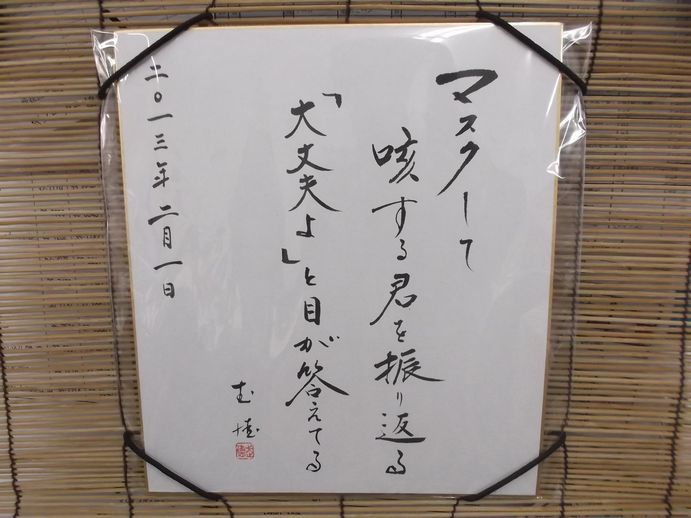 マスクして
咳する君を振り返る
「大丈夫よ」と目が答えてる
二〇一三年 二月一日